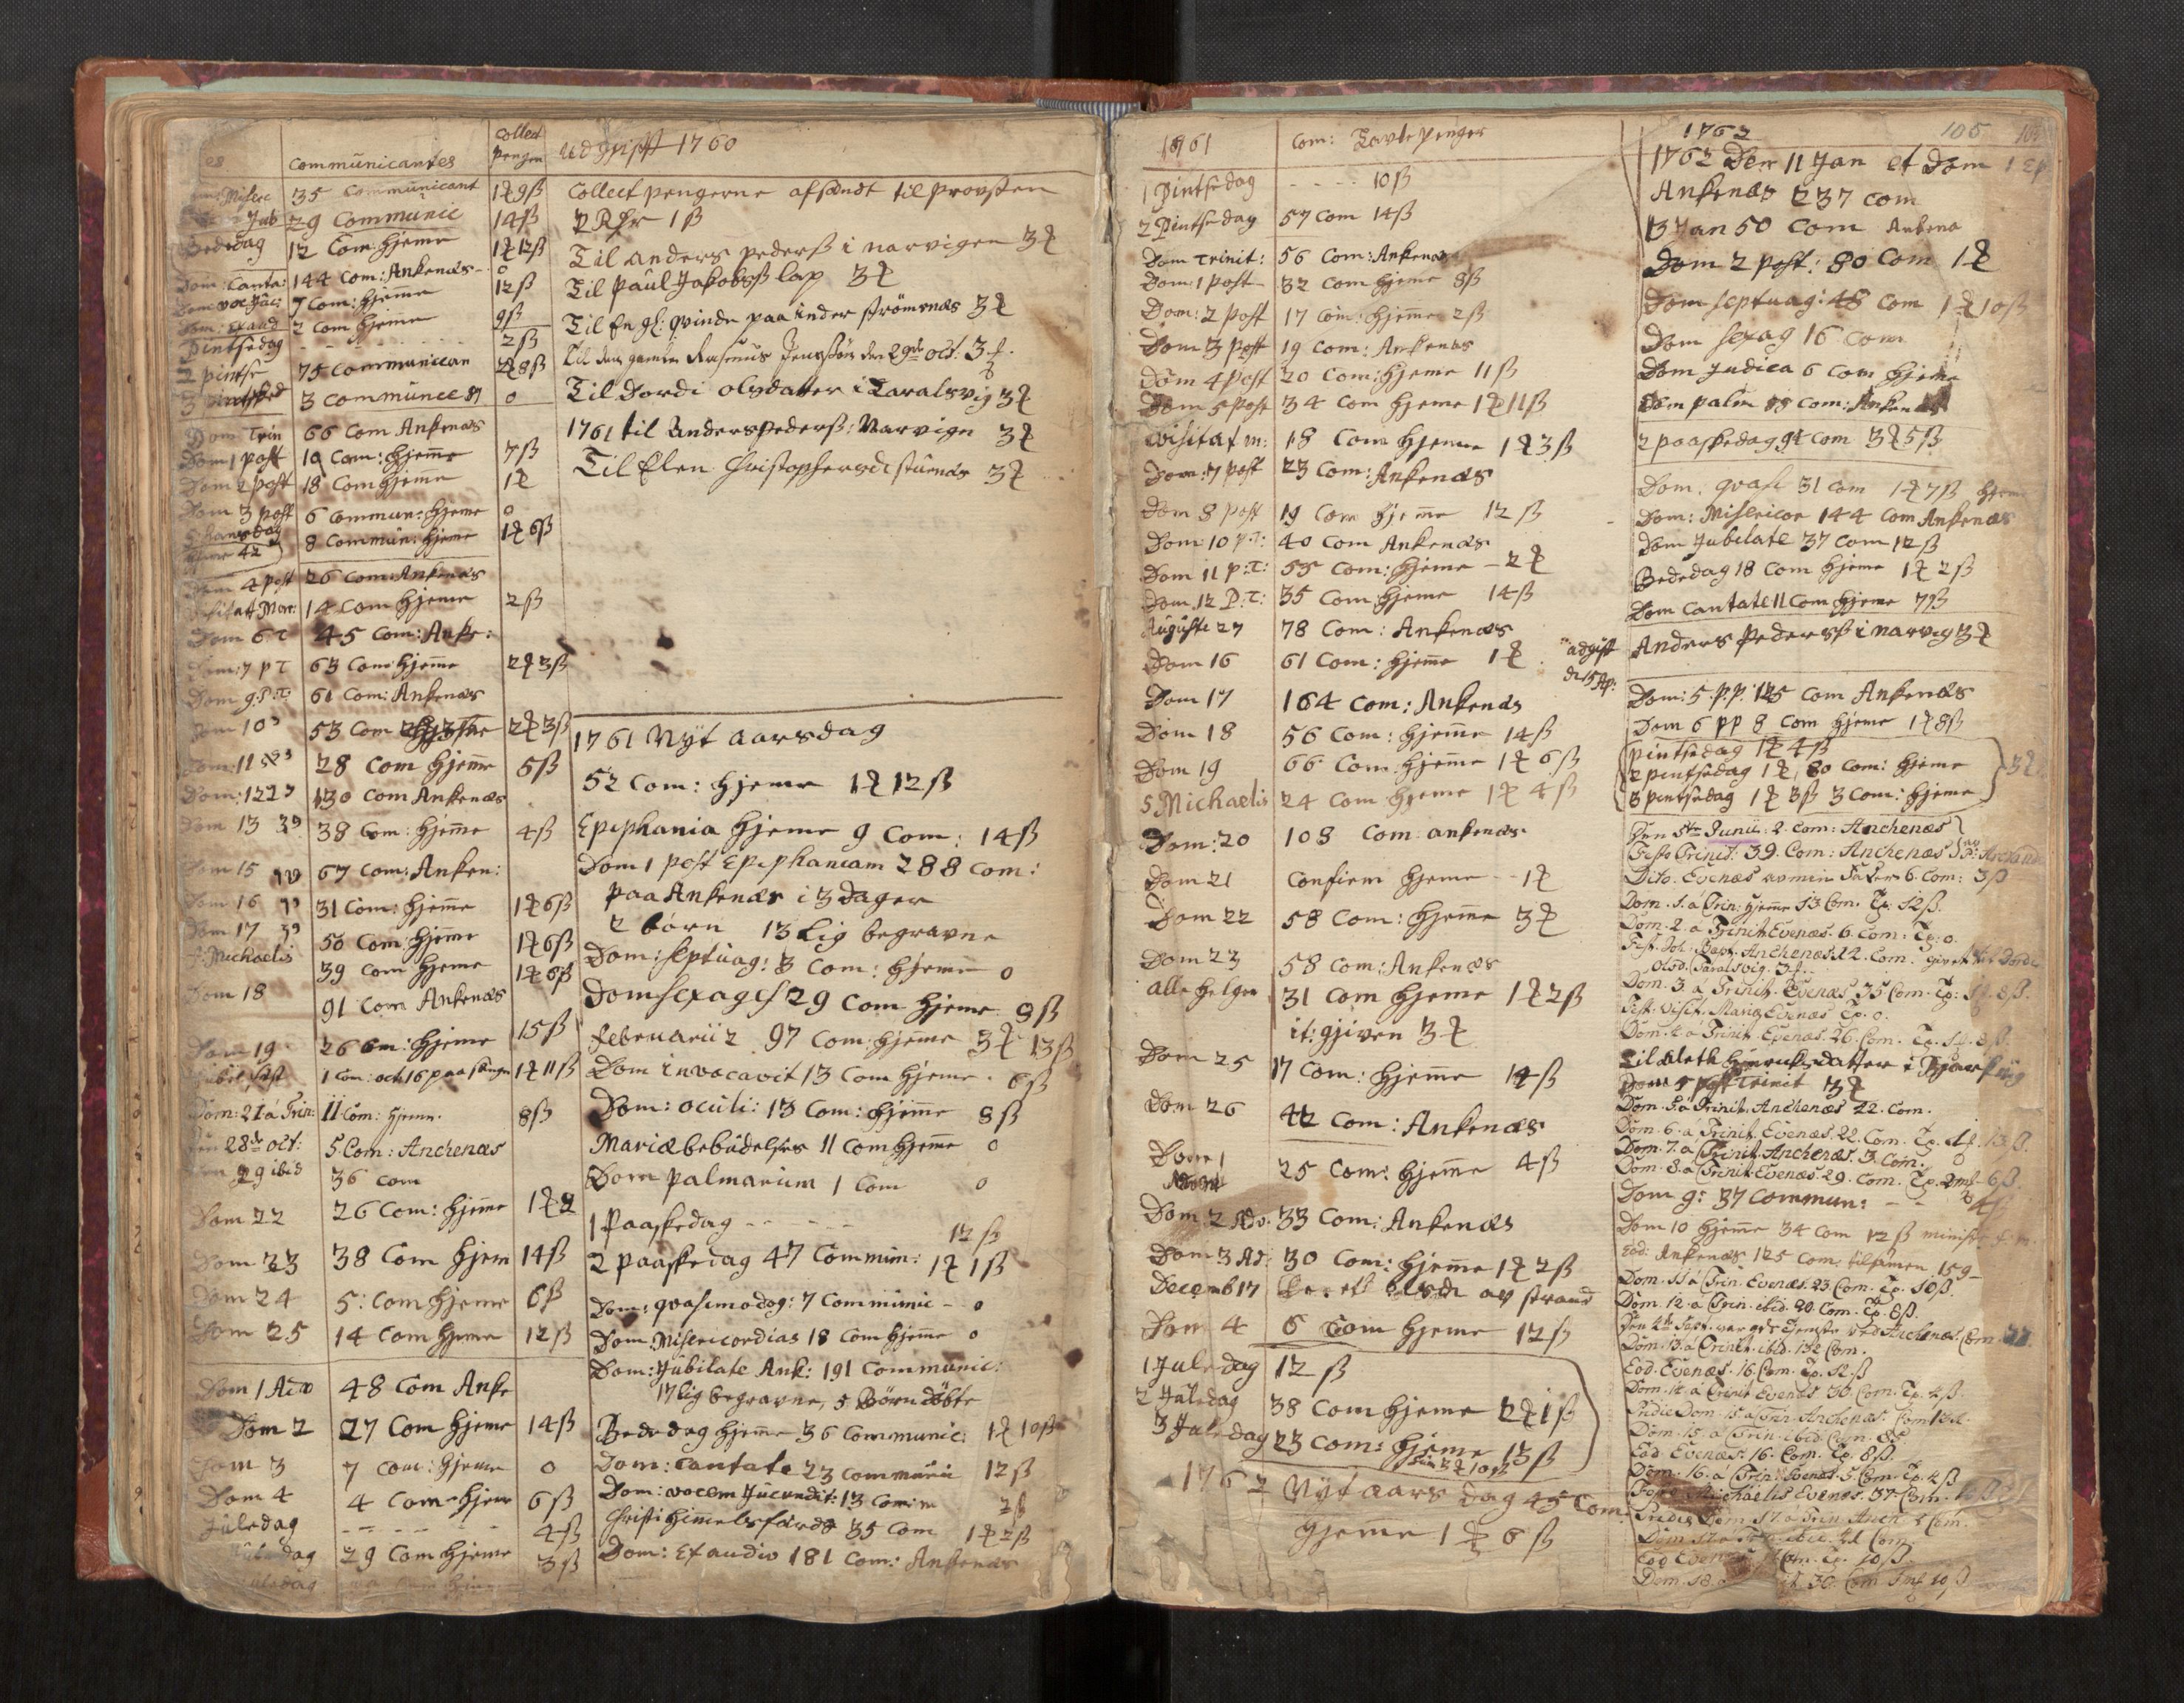 communicantes
collect
pengen
Udgifft 1760
Misec 35 communicant 1 ℔ 9 ß
Jub 29 Communic 14 ß
Bededag 12 Com: hjeme 1 ℔ 12 ß
Dom: Canta: 144 Com: Ankenæs - 0
Dom voc Juc: 7 Com: hjeme 12 ß
Dom: Exaud 2 Com hjeme 9 ß
Pintsedag - - - - 2 ß
2 pintse 75 Communican 2 ℔ 8 ß
3 3 Communce 0
Dom Trin 66 Com Ankenæs
Dom 1 post 10 Com: hjeme 7 ß
Dom 2 post 18 Com hjeme 1 ℔
Dom 3 post 6 Commun: hjeme 0
8 Commun: hjeme 1 ℔ 6 ß
Dom 4 post 26 Com: Ankenæs
Visitat Mar: 14 Com hjeme 2 ß
Dom 6 T 45 Com: Anke:
Dom: 7 p T 63 Com hjeme 2 ℔ 3 ß
Dom 9 P: T: 61 Com: Ankenæs
Dom 10 53 Com 2 ℔ 3 ß
Dom: 11 28 Com hjeme 5 ß
Dom: 12 130 Com Ankenæs
Dom 13 38 Com: hjeme 4 ß
Dom 15 67 Com: Anken:
Dom 16 31 Com: hjeme 1 ℔ 6 ß
Dom 17 50 Com: hjeme 1 ℔ 6 ß
Michaelis 39 Com hjeme 1 ℔ 6 ß
Dom 18 91 Com Ankenæs
Dom 19 26 Com: hjeme 15 ß
1 Com: och 16 paa 1 ℔ 11 ß
Dom: 21 á Trin: 11 Com: hjemme. 8 ß
Den 28de oct: 5. Com: Anchenæs
29 ibid 36 com
Dom 22 26 Com: hjeme 1 ℔ 2
Dom 23 38 Com hjem 14 ß
Dom 24 5: Com hjeme 6 ß
Dom 25 14 Com hjeme 12 ß
Dom 1 Adv 48 Com Anke
Dom 2 27 Com hjeme 14 ß
Dom 3 7 Com: hjeme 0
Dom 4 4 Com hjem 6 ß
Juledag - - - - 4 ß
29 Com hjeme 3 ß
Collect pengerne afsændt til provsten
2 Rdr 1 ß
Til Anders pederß i Narvigen 3 ℔
Til Paul Jakobß lap 3 ℔
Til En gl: qvinde paa inder strömsnæs 3 ℔
Til den gamle Rasmus Jensßön den 29de oct. 3 ℔.
Til Dordi olsdatter i Taralsvig 3 ℔
1761 til Anders pederß: Narvigen 3 ℔
Til Elen Christophersdr 3 ℔
1761 Nyt aarsdag
52 Com: hjeme 1 ℔ 12 ß
Epiphania hjeme 9 Com: 14 ß
Dom 1 post Epiphaniam 288 Com:
paa Ankenæs i 3 dager
2 börn 13 lig begravne
Dom: septuag: 3 Com: hjeme 0
Dom sexages 29 Com hjeme 9 ß
februarii 2 97 Com: hjeme 3 ℔ 13 ß
Dom invocavit 13 Com hjeme. 6 ß
Dom: oculi: 13 Com: hjeme 8 ß
Mariæ bebudelses 11 Com hjeme 0
Dom palmarum 1 Com 0
1 Paaskedag - - - - 12 ß
2 paaskedag 47 Commun: 1 ℔ 1 ß
Dom: qvasimodog: 7 Commimic - 0
Dom: Misericordias 18 Com hjeme 0
Dom: Jubilate Ank: 191 Communic:
17 lig begravne, 5 Börn döbte
Bededag hjeme 36 Communic: 1 ℔ 10 ß
Dom: Cantate 23 Communi 12 ß
Dom: vocem Jucundit: 13 Comm 2 ß
Christi himelsfærds 35 Com 1 ℔ 2 ß
Dom: Exaudio 181 Com: Ankenæs
1761 Com: Tavlepenger
1 Pintsedag - - - - 10 ß
2 Pintsedag 57 Com 14 ß
Dom Trinit: 56 Com: Ankenæs
Dom: 1 post - 32 Com hjeme 8 ß
Dom: 2 post 17 Com: hjeme 2 ß
Dom 3 post 19 Com: Ankenæs
Dom 4 post 20 Com: hjeme 11 ß
Dom 5 post 34 Com hjeme 1 ℔ 11 ß
Visitat m: 18 Com hjeme 1 ℔ 3 ß
Dom: 7 post 23 Com: Ankenæs
Dom 8 post 19 Com hjeme 12 ß
Dom: 10 p: T: 40 Com Ankenæs
Dom 11 p: T: 55 Com: hjeme - 2 ℔
Dom 12 P: T: 35 Com: hjeme 14 ß
Auguste 27 78 Com: Ankenæs
Dom 16 61 Com: hjeme 1 ℔
Dom 17 164 Com: Ankenæs
Dom 18 56 Com: hjeme 14 ß
Dom 19 66 Com hjeme 1 ℔ 6 ß
S. Michaelis 24 Com hjeme 1 ℔ 4 ß
Dom: 20 108 Com ankenæs
Dom 21 Confirm hjeme - - 1 ℔
Dom 22 58 Com: hjeme 3 ℔
Dom 23 58 Com: Ankenæs
alle helgen 31 Com hjeme 1 ℔ 2 ß
it: gjiven 3 ℔
Dom 25 17 Com: hjeme 14 ß
Dom 26 42 Com: Ankenæs
Dom 1 25 Com: hjeme 4 ß
Dom 2 Adv. 33 Com: Ankenæs
Dom 3 Ad: 30 Com: hjeme 1 ℔ 2 ß
Decemb 17 av strand
Dom 4 6 Com hjeme 12 ß
1 Juledag 12 ß
2 Juledag 38 Com hjeme 2 ℔ 1 ß
3 Juledag 23 Com: hjeme 13 ß
1762 Nyt aars dag 45 Com:
hjeme 1 ℔ 6 ß
1762 105
1762 Den 11 Jan et Dom 1 Ep
Ankenæs 237 Com
13 Jan 50 Com Ankenæ
Dom 2 post: 80 Com 1 ℔
Dom septuag: 48 Com 1 ℔ 10 ß
Dom sexag 16 Com
Dom Judica 6 Com hjeme
Dom palm 88 Com: Ankenæs
2 paaskedag 94 Com 3 ℔ 5 ß
Dom. qvasi 31 Com 1 ℔ 7 ß hjem
Dom: Misericor 144 Com Ankenæs
Dom Jubilate 37 Com 12 ß
Bededag 18 Com hjeme 1 ℔ 2 ß
Dom Cantate 11 Com hjeme 7 ß
udgift
Anders Pederß i narvig 3 ℔
Dom: 5. p. p: 125 Com Ankenæs
Dom 6 pp 8 Com hjeme 1 ℔ 8 ß
Pintsedag 1 ℔ 4 ß
2 pintsedag 1 ℔, 80 Com: hjeme
3 pintsedag 1 ℔ 3 ß 3 Com: hjeme 3 ℔
Den 5te Junii: 2. Com: Anchenæs
Festo Trinit: 39. Com: Anchenæs
Dito. Evenæs av min Fader 6. Com: 3 ß
Dom. 1. á Trin: hjeme 13 Com. Tp. 12 ß.
Dom. 2. á Trinit. Evenæs. 6. Com: Tp: 0.
Fest. Joh. Bapt. Anchenæs. 12. Com. givet til Dordi
Olsd. Taralsvig. 3 ℔.
Dom. 3. á Trinit. Evenæs. 35 Com. Tp: 1 ℔. 8 ß.
Fest. Visit. Mariæ Evenæs Tp. 0.
Dom. 4. á Trinit. Evenæs. 26. Com. Tp. 1 ℔. 8 ß.
Til Aleth Henrichsdatter i
Dom 5 post Trinit 3 ℔
Dom. 5. á Trinit. Anchenæs 22. Com.
Dom. 6. á Trinit. Evenæs. 22. Com. Tp. 1 ℔. 13 ß.
Dom. 7. á Trinit. Anchenæs. 3. Com.
Dom. 8. á Trinit. Evenæs. 29. Com. Tp. 2 ℔ 6 ß.
Dom 9: 37 Commun: - - 4 ß
Dom 10 hjeme 34 Com 12 ß
Eod: Ankenæs 125 Com. tilsamen 159
Dom. 11 á Trin. Evenæs. 23. Com. Tp. 10 ß.
Dom. 12. á Trin. ibid. 20. Com. Tp. 8 ß.
Dom. 13. á Trinit. ibid. 132 Com.
Eod. Evenæs. 16. Com. Tp. 12 ß
Dom. 14. á Trinit Evenæs 30. Com. Tp. 4 ß.
Dom. 15. á Trin. ibid. Com. 85
Eod. Evenæs. 16. Com. Tp. 8 ß.
Dom. 16. á Trin. Evenæs. 5. Com. Tp. 4 ß
Festo Michaelis Evenæs. 37. Com.